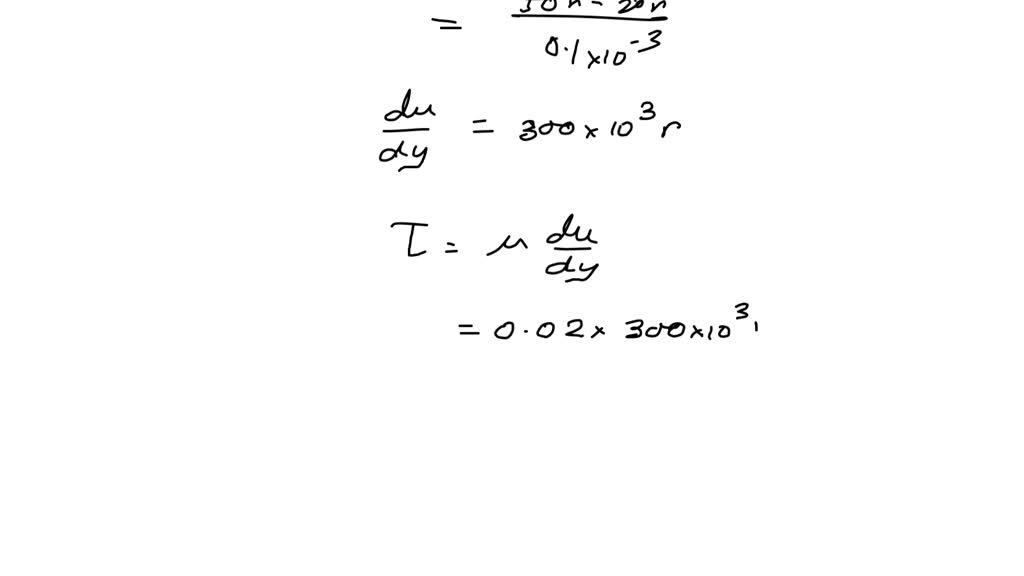 =
0.1×10⁻³
du/dy = 300×10³ r
τ = μ du/dy
= 0.02× 300×10³